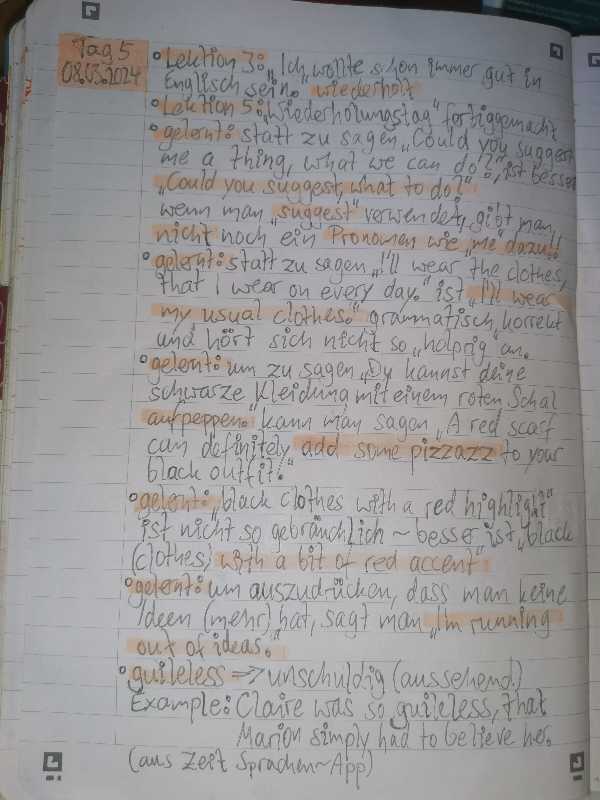 Tag 5
08.03.2024
• Lektion 3: „Ich wollte schon immer gut in
Englisch sein." wiederholt
• Lektion 5: „Wiederholungstag" fertiggemacht
• gelernt: statt zu sagen „Could you suggest
me a thing, what we can do?", ist besser
„Could you suggest, what to do?"
wenn man „suggest" verwendet, gibt man
nicht noch ein Pronomen wie „me" dazu!!
• gelernt: statt zu sagen „I'll wear the clothes,
that I wear on every day." ist „I'll wear
my usual clothes." grammatisch korrekt
und hört sich nicht so „holprig" an.
• gelernt: um zu sagen „Du kannst deine
schwarze Kleidung mit einem roten Schal
aufpeppen." kann man sagen „A red scarf
can definitely add some pizzazz to your
black outfit!"
• gelernt: „black clothes with a red highlight"
ist nicht so gebräuchlich ~ besser ist „black
clothes with a bit of red accent"
• gelernt: um auszudrücken, dass man keine
Ideen (mehr) hat, sagt man „I'm running
out of ideas."
• guileless => unschuldig (aussehend)
Example: Claire was so guileless, that
Marion simply had to believe her.
(aus Zeit Sprachen~App)